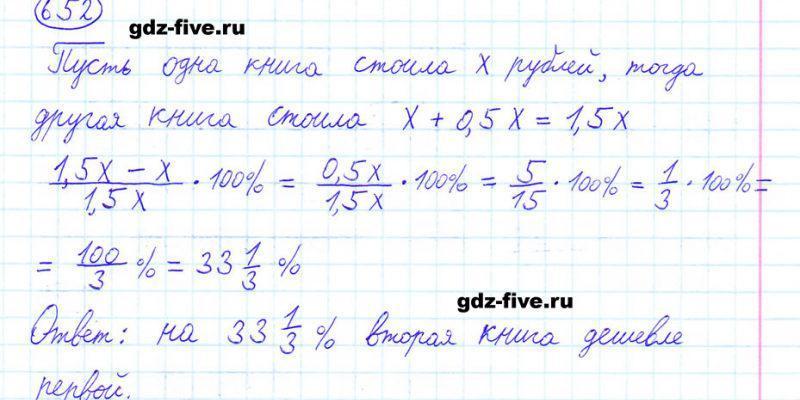 652
gdz-five.ru
Пусть одна книга стоила x рублей, тогда
другая книга стоила x + 0,5x = 1,5x
(1,5x − x)/(1,5x) · 100% = 0,5x/1,5x · 100% = 5/15 · 100% = 1/3 · 100% =
= 100/3 % = 33 1/3 %
gdz-five.ru
Ответ: на 33 1/3 % вторая книга дешевле
первой.